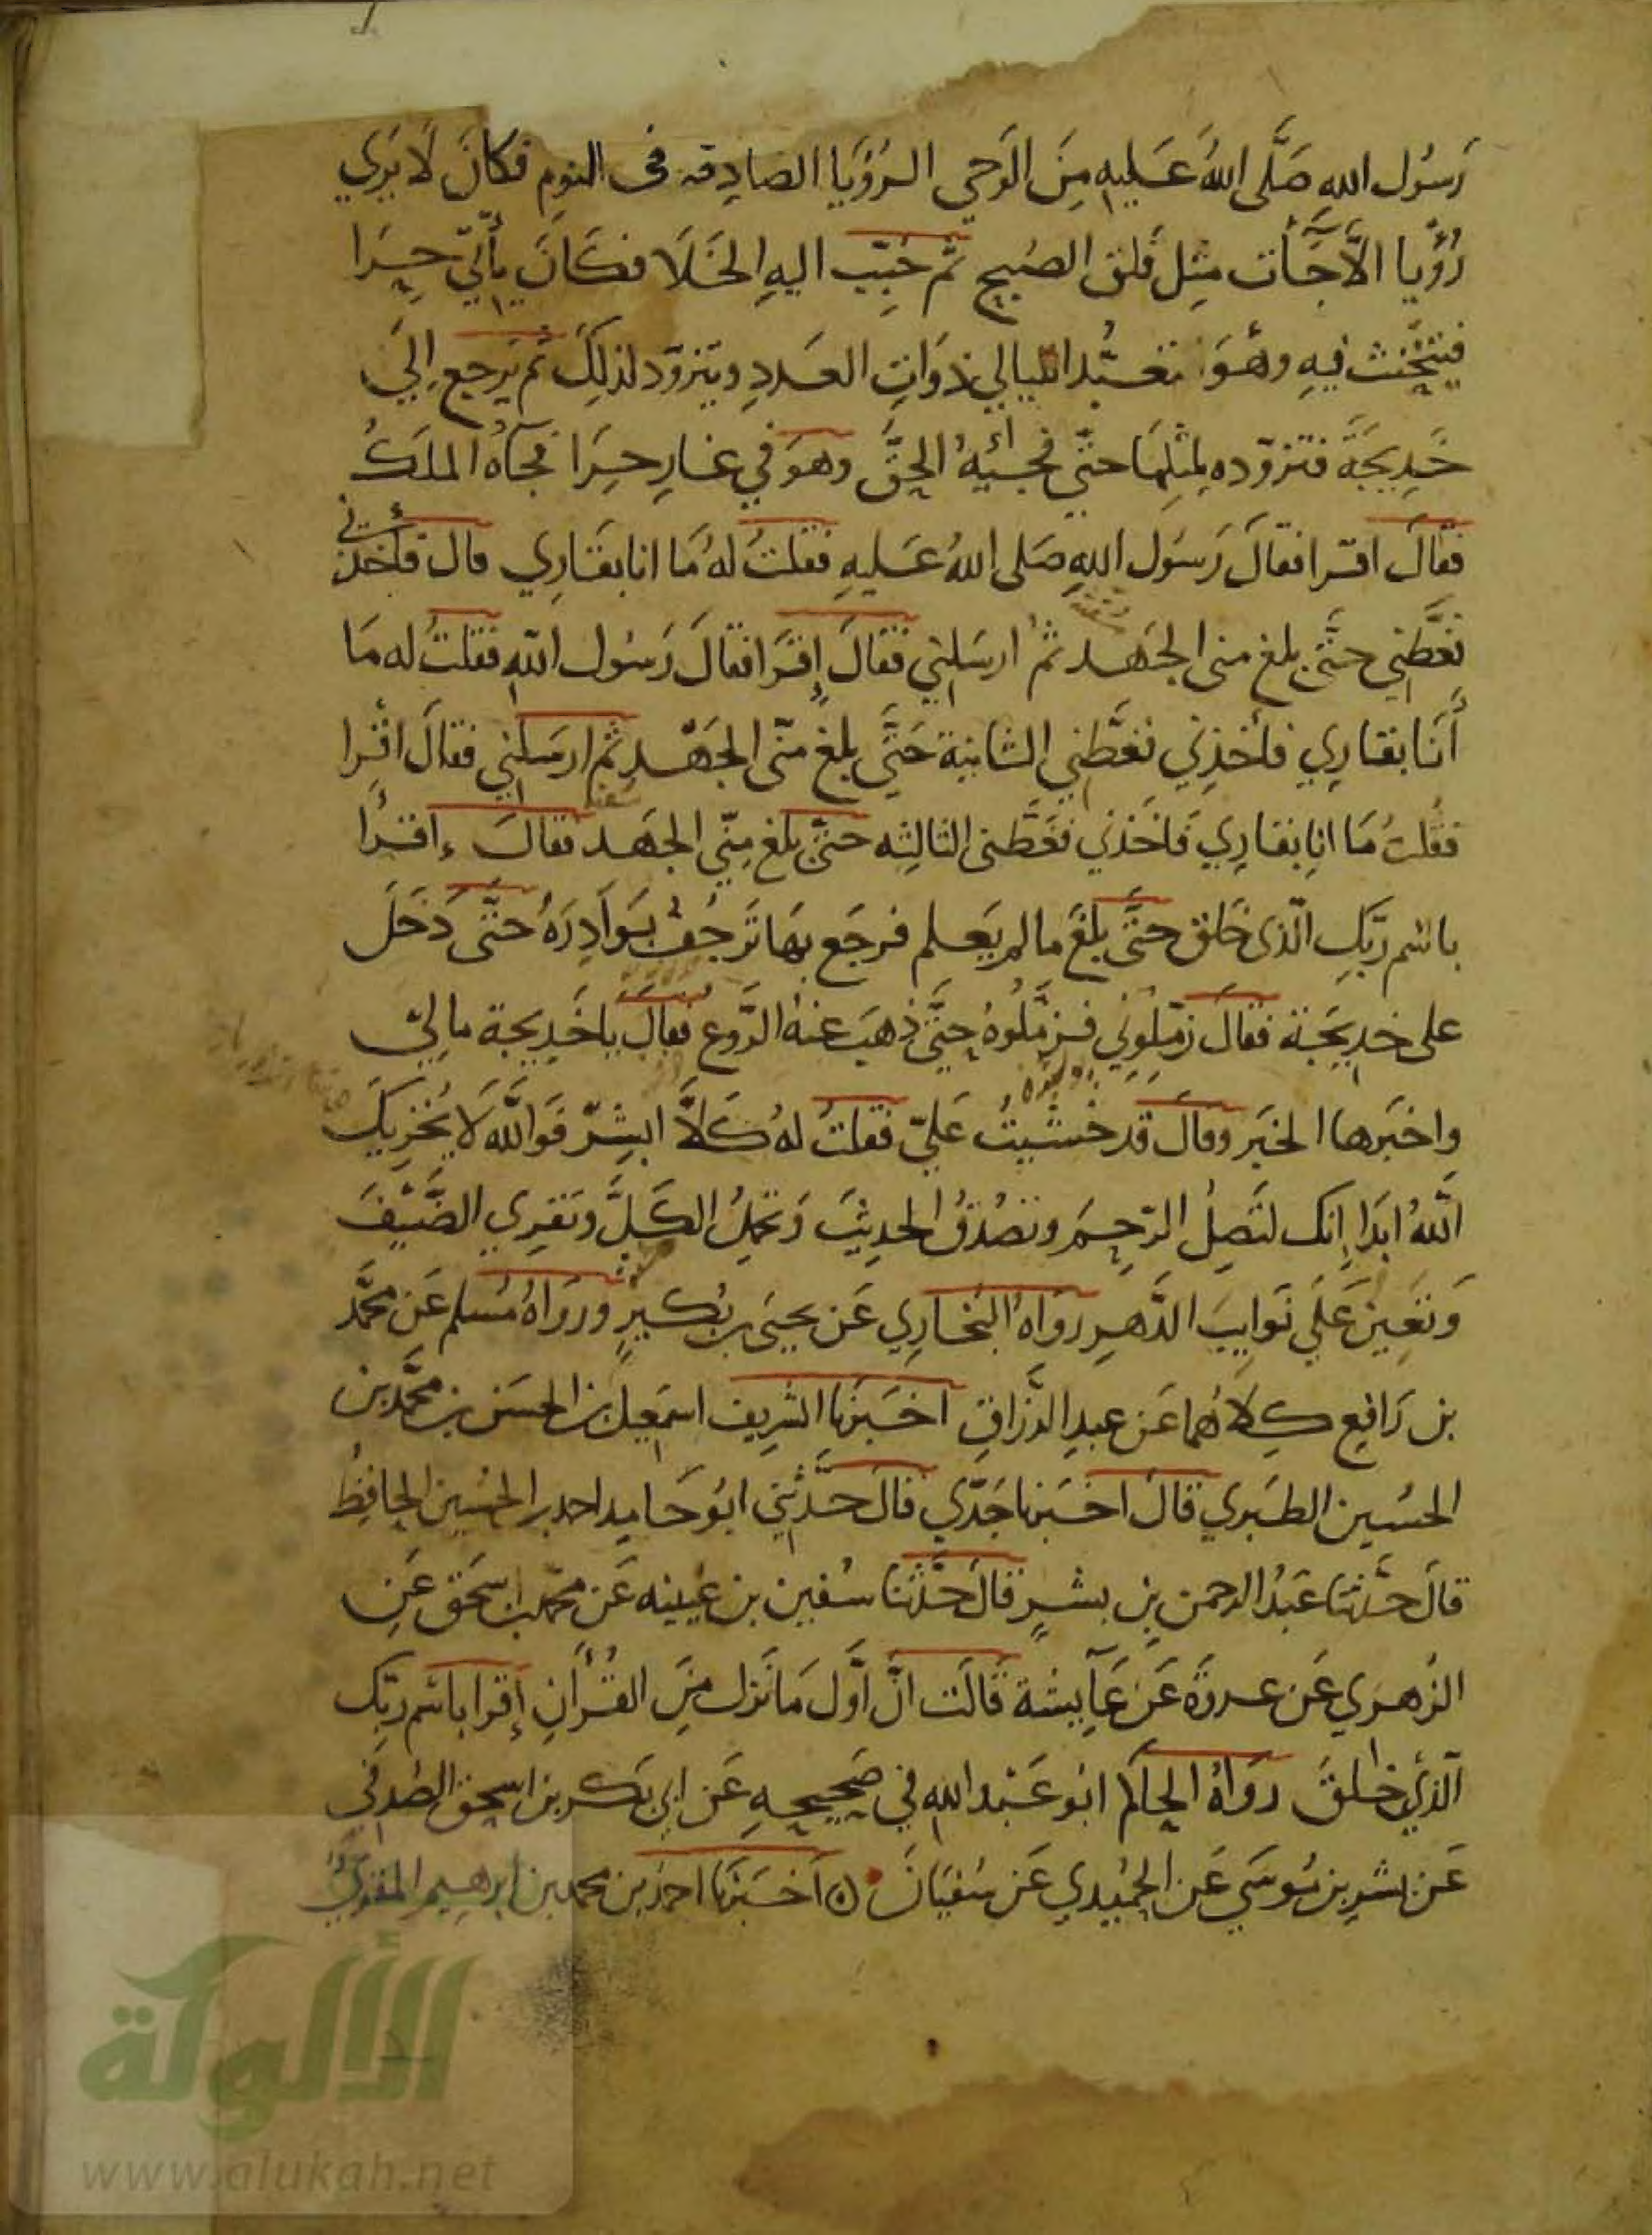 رَسُول اللهِ صَلَّى اللهُ عَليهِ مِنَ الوَحيِ الرُؤيَا الصادِقه فى النومِ فكانَ لَا يَرَي
رُؤْيا الاَّ جَآَت مِثِل فَلق الصُبح ثم حُبِّبَ اليهِ الخَلَا فكَانَ يأتي حِرَا
فيتَحنث فيهِ وهُوَ تعَبُّد الليالي ذَوَاتِ العَددِ ويتزوّد لذلِكَ ثم يَرجع اِلَي
خَدِيجَةَ فتزوّده لمِثلِهَا حَتّي فجئهُ الحقَّ وهوَ في غارِ حِرَا فجآهُ الملَكُ
فقالَ اقرا فقالَ رَسُول اللهِ صَلى اللهُ عَليهِ فقلتُ لهُ مَا انا بقَارِي قال فأخذني
فغَطَّنِي حتَّى بلغ منى الجَهد ثمُ ارسَلِني فقالَ إِقرَا فقالَ رَسُول اللهِ فقلتُ له مَا
أَنَا بقارِي فأخذِني فغَطَّنِي الثانية حَتَّي بلغ منّى الجَهْد ثم ارسَلني فقالَ اقْرا
فقُلتُ مَا انا بقارِي فَاخَذني فغَطَّنى الثالِثه حتَّى بلغ مِنّي الجهَد فقالَ اقرأ
باسْم رَبِّكِ الّذى خَلق حتَّى بَلغَ مالم يَعلم فرجَع بهَا تَرجُفُ بَوَادِرَهُ حَتَّى دَخَلَ
على خديجَة فقالَ زمّلوني فزَمَّلُوهُ حتَّى ذهَب عنهُ الرَّوع فقالَ يا خَدِيجة مالي
واخبَرها الخبَر وقالَ قد خشيتُ عَليّ فقلتُ لهُ كَلاَّ ابشِرّ فَوَاللَّه لَا يُخزِيكَ
اللَّهُ ابَدا اِنك لتَصِلُ الرّحِمَ وتصْدُقُ الحدِيثَ وَتحملُ الكَلَّ وتَقرِي الضَّيْفَ
وَتعِينُ عَلَي نَوايبَ الدَّهرِ رَوَاهُ البُخارِي عَن يحيَى بن بُكيرٍ وروَاهُ مُسلم عَن محمَّد
بن رَافِع كِلاهُما عَن عبدِ الرّزاقِ اخبَرنا الشريف اسمَعِيل بن الحسَن بن محمَّد بن
الحسُين الطبَري قالَ اخبَرنا جَدّي قالَ حَدَّثنِي ابُو حَامِد احمد بن الحسُين الحافِظُ
قالَ حدَّثنا عَبدُ الرحمن بن بشرٍ قالَ حَدَّثنَا سُفين بن عُيينه عَن محمد بن اسحَق عَنِ
الزهري عَن عروَة عَن عَآيشة قَالَت انَّ اوَّل مَا نَزل مِنَ القُرأن إقرا باسْم ربِّك
الّذي خلقَ رَوَاهُ الحاكم ابُو عَبْد اللهِ في صَحِيحِهِ عَن ابي بَكر بن اسحق الضُبعي
عَن بشرِ بن مُوسَي عَن الحُمَيدي عَن سُفيَانَ اخبَرنا احمد بن محمد بن ابرهيم المقري
الألوكة
www.alukah.net